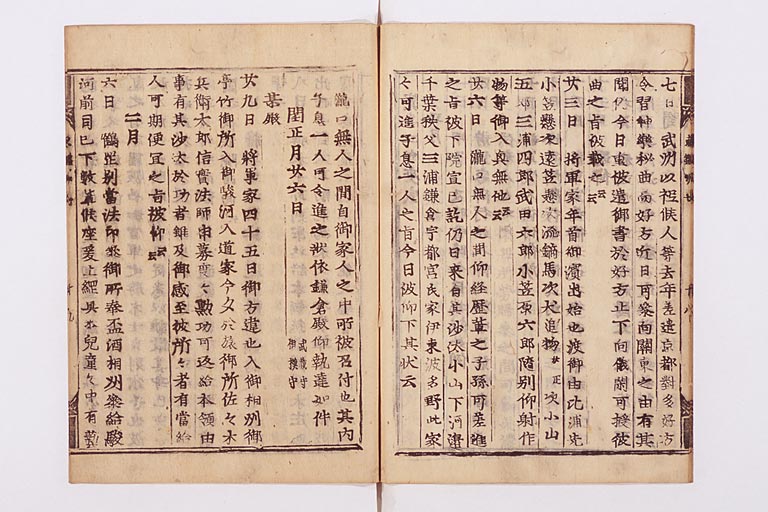 七日 武州以祗候人等去年差遣京都對多好方
令習神樂秘曲而好方近日可參向關東之由有其
聞仍今日更被遣御書於好方止下向儀閑可授彼
曲之旨被載之云云
廿三日 將軍家年首御濱出始也渡御由比浦先
小笠懸次遠笠懸次流鏑馬次犬追物廿疋次小山
五郎三浦四郎武田六郎小笠原六郎隨別仰射作
物等御入興無他云云
廿六日 瀧口無人之間仰經歷輩之子孫可差進
之旨被下院宣已訖仍日來有其沙汰小山下河邊
千葉秩父三浦鎌倉宇都宮氏家伊東波多野此家
々可進子息一人之旨今日被仰下其狀云
瀧口無人之間自御家人之中所被召付也其內
子息一人可令進之狀依鎌倉殿仰執達如件
閏正月廿六日 武藏守 相摸守
某殿
廿九日 將軍家四十五日御方違也入御相州御
亭竹御所入御駿河入道家今夕於旅御所佐々木
兵衛太郎信實法師申募度々勲功可返給本領由
事有其沙汰於功者雖及御感至彼所々者有當給
人可期便宜之旨被仰云云
二月
六日 鶴岳別當法印參御所奉盃酒相州參給駿
河前司已下數輩候座爰上綱具小兒童々中有藝